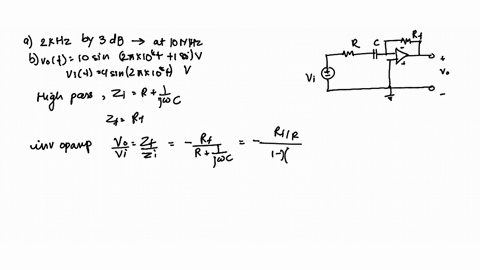 a) 2kHz by 3dB → at 10kHz
b) vo(t) = 10 sin (2π×10^4t + 180) V
Vi(t) = 4 sin (2π×10^4t) V
High pass, Zi = R + 1/jωC
Zf = Rf
inv opamp Vo/Vi = Zf/Zi = - Rf/(R + 1/jωC) = - Rf/R / 1-j(
R C Rf
Vi
+
Vo
-